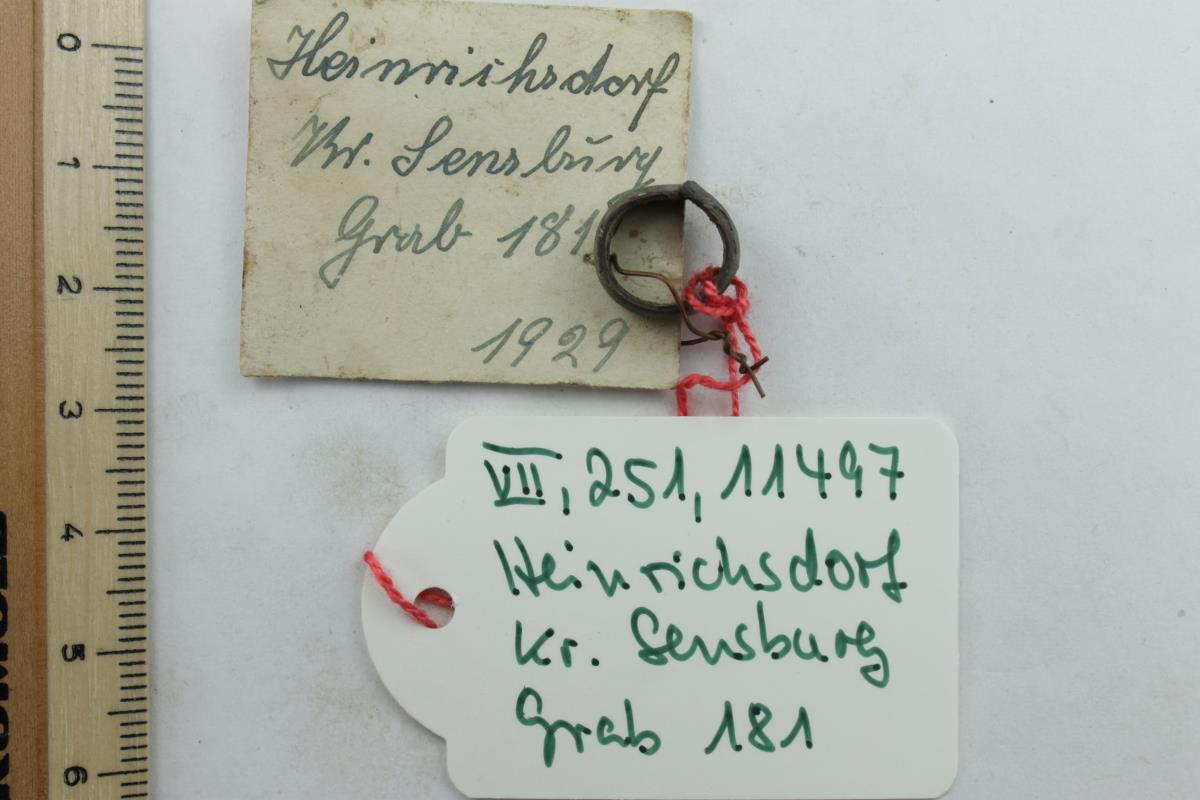 Heinrichsdorf
Kr. Sensburg
Grab 181
1929
VII, 251, 11497
Heinrichsdorf
Kr. Sensburg
Grab 181
0
1
2
3
4
5
6